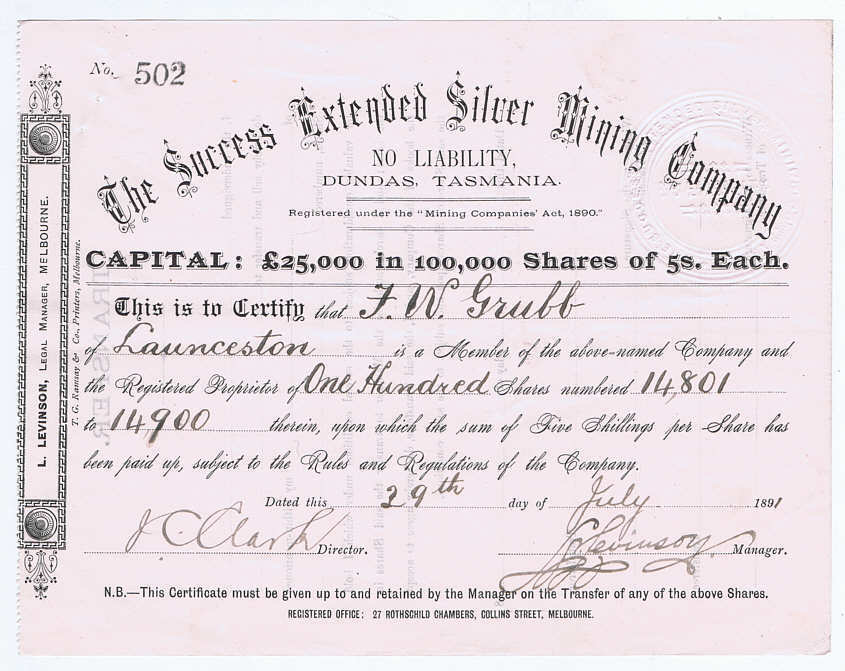 No. 502
The Success Extended Silver Mining Company
NO LIABILITY,
DUNDAS, TASMANIA.
Registered under the "Mining Companies' Act, 1890."
CAPITAL: £25,000 in 100,000 Shares of 5s. Each.
This is to Certify that F. W. Grubb
of Launceston is a Member of the above-named Company and
the Registered Proprietor of One Hundred Shares numbered 14,801
to 14,900 therein, upon which the sum of Five Shillings per Share has
been paid up, subject to the Rules and Regulations of the Company.
Dated this 29th day of July 1891
J. C. Clark Director. L. Levinson Manager.
N.B.—This Certificate must be given up to and retained by the Manager on the Transfer of any of the above Shares.
REGISTERED OFFICE: 27 ROTHSCHILD CHAMBERS, COLLINS STREET, MELBOURNE.
L. LEVINSON, LEGAL MANAGER, MELBOURNE.
T. G. Ramsay & Co., Printers, Melbourne.
TRANSFER.